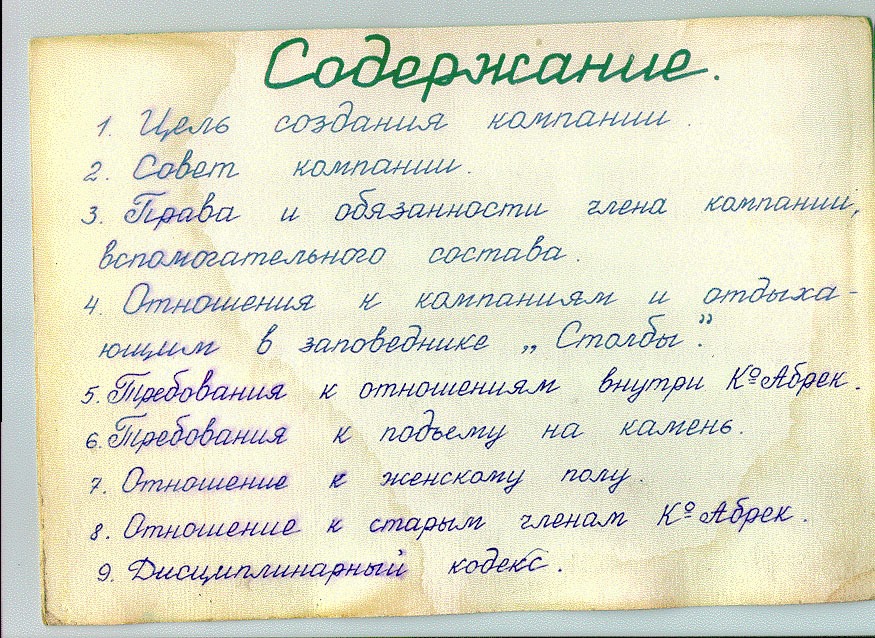 Содержание.
1. Цель создания компании.
2. Совет компании.
3. Права и обязанности члена компании,
вспомогательного состава.
4. Отношения к компаниям и отдыха-
ющим в заповеднике „Столбы”.
5. Требования к отношениям внутри Кº Абрек.
6. Требования к подъему на камень.
7. Отношение к женскому полу.
8. Отношение к старым членам Кº Абрек.
9. Дисциплинарный кодекс.